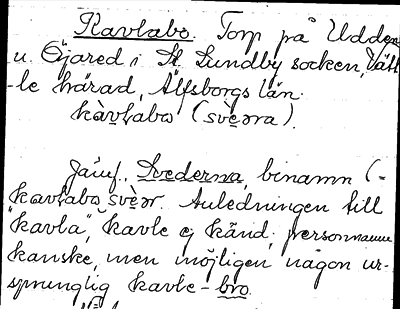 Kavlabo. Torp på Udden
u. Öjared i St. Lundby socken, Vätt-
-le härad, Älfsborgs län.
kàvlabo (svèəra).
Jämf. Svederna, binamn (-
kavlabo svèər. Anledningen till
"kavla", kavle ej känd, personnamn
kanske, men möjligen någon ur-
sprunglig kavle-bro.